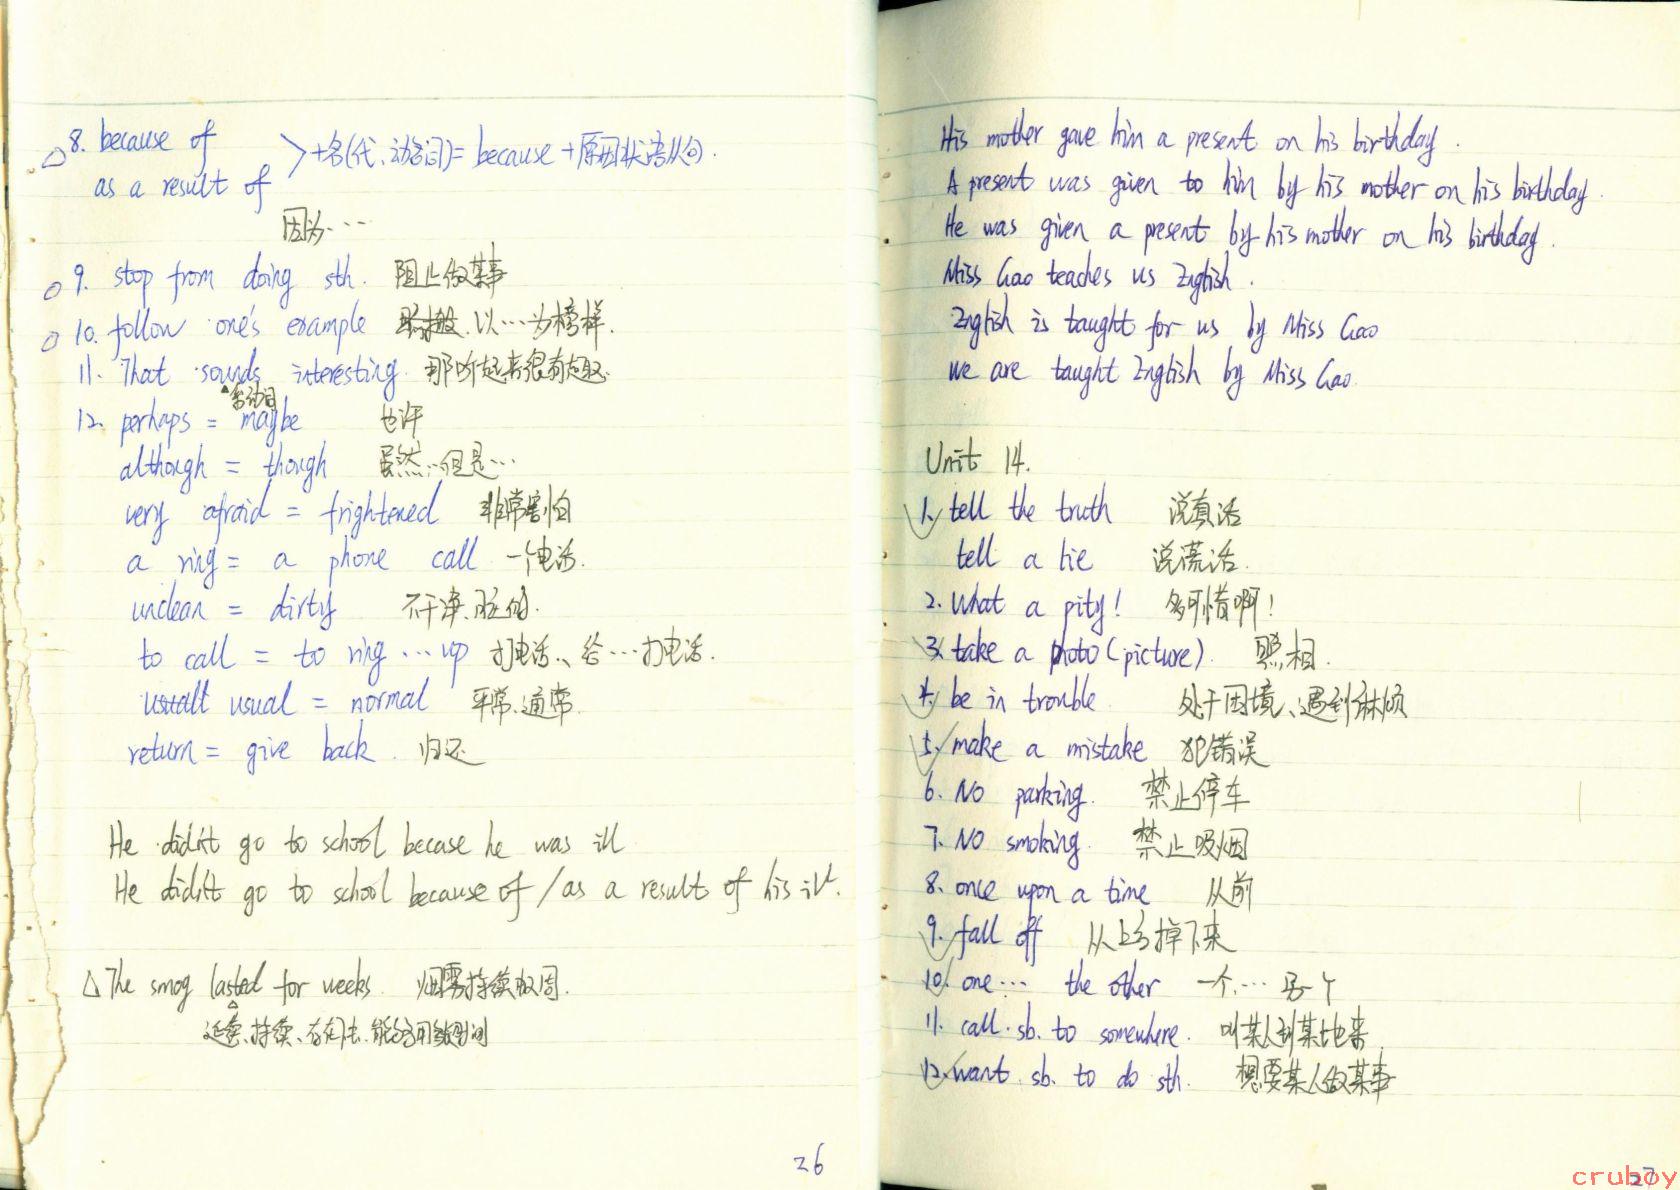 8. because of
as a result of
>+名(代、动名词)= because +原因状语从句.
因为…
9. stop from doing sth. 阻止做某事
10. follow one's example 照搬.以…为榜样.
11. That sounds interesting. 那听起来很有趣.
系动词
12. perhaps = maybe 也许
although = though 虽然…但是…
very afraid = frightened 非常害怕
a ring = a phone call 一个电话.
unclean = dirty 不干净、脏的.
to call = to ring … up 打电话、给…打电话.
usual = normal 平常.通常.
return = give back. 归还
He didn't go to school becase he was ill
He didn't go to school because of / as a result of his ill.
△The smog lasted for weeks. 烟雾持续数周.
延续、持续、存在
26
His mother gave him a present on his birthday.
A present was given to him by his mother on his birthday.
He was given a present by his mother on his birthday.
Miss Gao teaches us English.
English is taught for us by Miss Gao
we are taught English by Miss Gao.
Unit 14.
1. tell the truth 说真话
tell a lie 说谎话.
2. What a pity! 多可惜啊!
3. take a photo (picture). 照相.
4. be in trouble 处于困境、遇到麻烦
5. make a mistake 犯错误
6. No parking. 禁止停车
7. No smoking. 禁止吸烟
8. once upon a time 从前
9. fall off 从…上掉下来
10. one… the other 一个…另一个
11. call sb. to somewhere. 叫某人到某地来.
12. want sb. to do sth. 想要某人做某事
27
cruboy